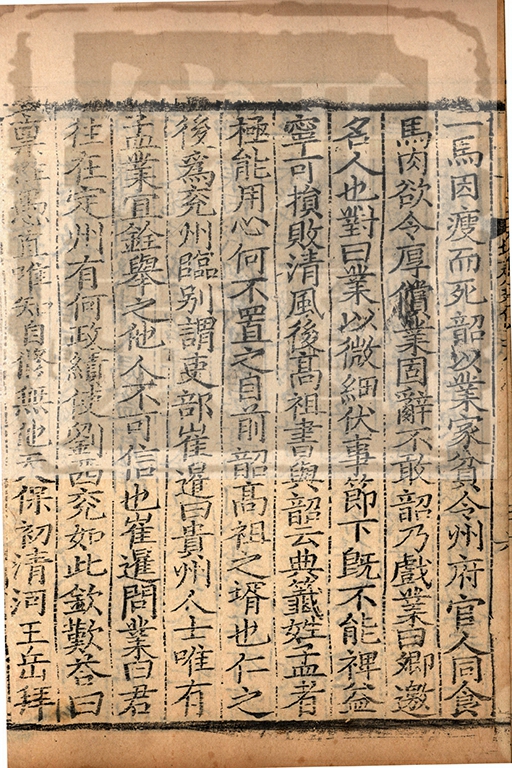 一馬因瘦而死韶以業家貧令州府官人同食
馬肉欲令厚償業固辭不敢韶乃戲業曰卿邀
名人也對曰業以微細伏事節下既不能裨益
寧可損敗清風後高祖書與韶云典籤姓孟者
極能用心何不置之目前韶高祖之壻也仁之
後爲兖州臨別謂吏部崔暹曰貴州人士唯有
孟業宜銓舉之他人不可信也崔暹問業曰君
往在定州有何政績使劉西兖如此欽歎答曰
稟性愚直唯知自修無他天保初清河王岳拜